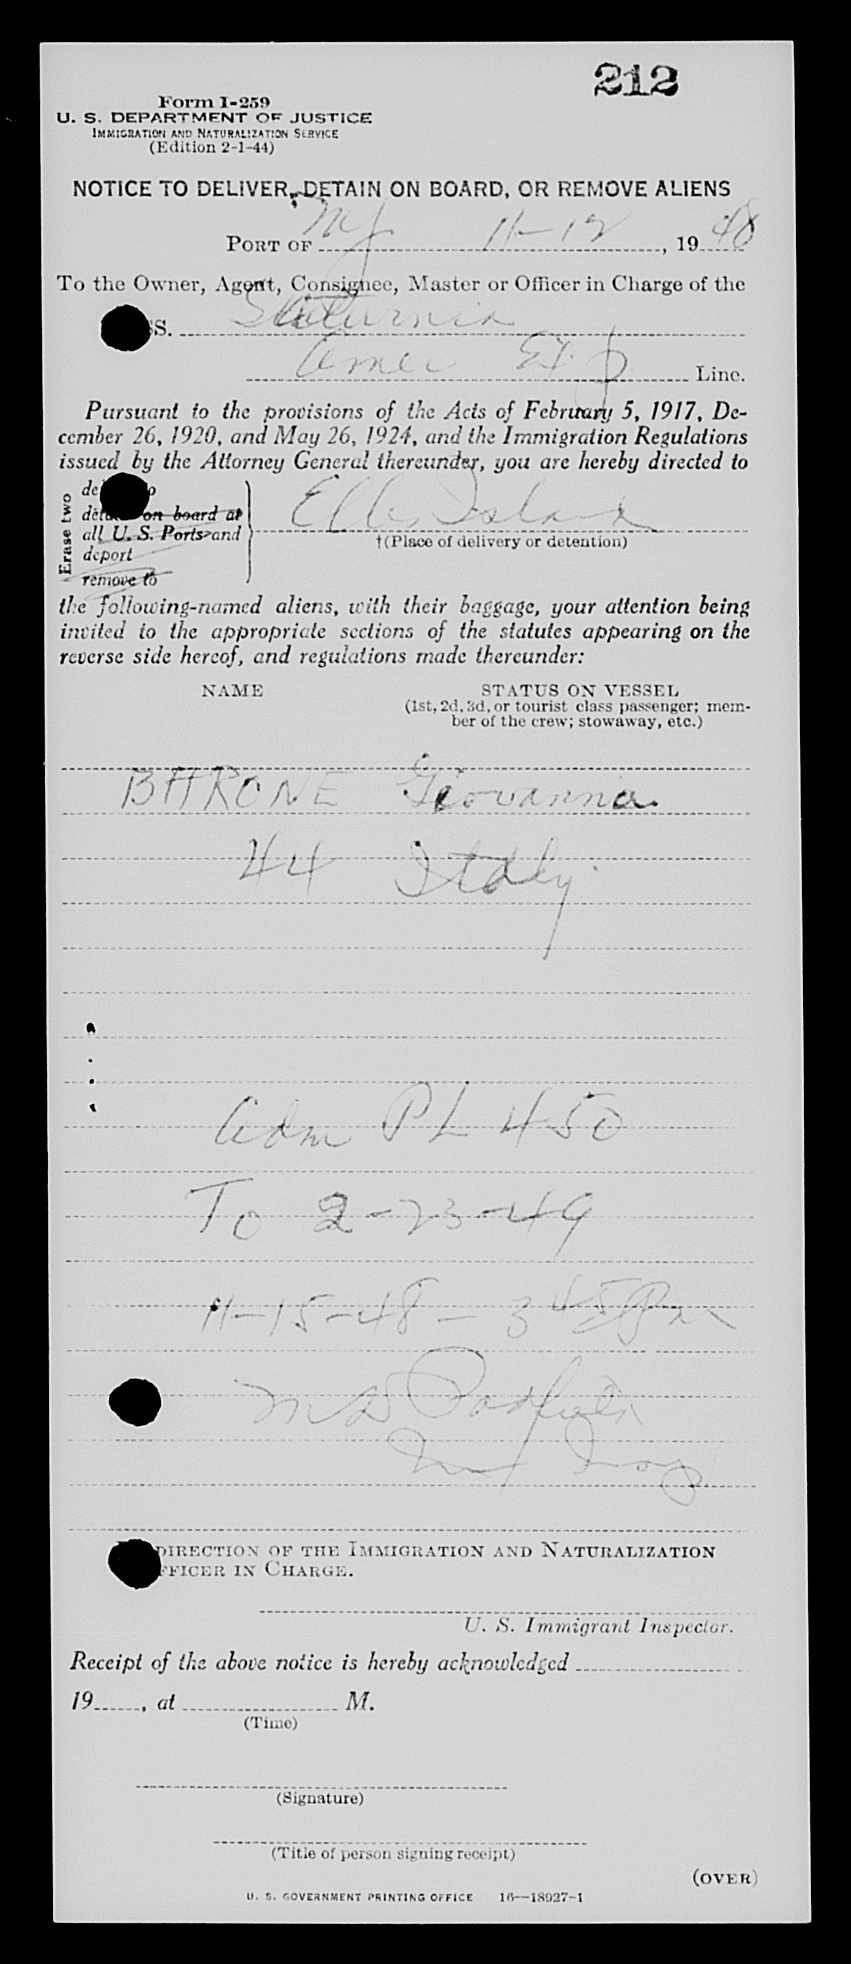 212
Form I-259
U. S. DEPARTMENT OF JUSTICE
IMMIGRATION AND NATURALIZATION SERVICE
(Edition 2-1-44)
NOTICE TO DELIVER, DETAIN ON BOARD, OR REMOVE ALIENS
PORT OF NY 11-12, 1948
To the Owner, Agent, Consignee, Master or Officer in Charge of the
SS. Saturnia
Amer Exp Line.
Pursuant to the provisions of the Acts of February 5, 1917, De-
cember 26, 1920, and May 26, 1924, and the Immigration Regulations
issued by the Attorney General thereunder, you are hereby directed to
Erase two
detain on board at
all U. S. Ports and
deport
remove to
Ellis Island
†(Place of delivery or detention)
the following-named aliens, with their baggage, your attention being
invited to the appropriate sections of the statutes appearing on the
reverse side hereof, and regulations made thereunder:
NAME STATUS ON VESSEL
(1st, 2d, 3d, or tourist class passenger; mem-
ber of the crew; stowaway, etc.)
BARONE Giovanna
44 Italy
Adm PL 450
To 2-23-49
11-15-48 - 3 45 Pm
DIRECTION OF THE IMMIGRATION AND NATURALIZATION
OFFICER IN CHARGE.
U. S. Immigrant Inspector.
Receipt of the above notice is hereby acknowledged
19, at M.
(Time)
(Signature)
(Title of person signing receipt)
(OVER)
U. S. GOVERNMENT PRINTING OFFICE 16—18927-1